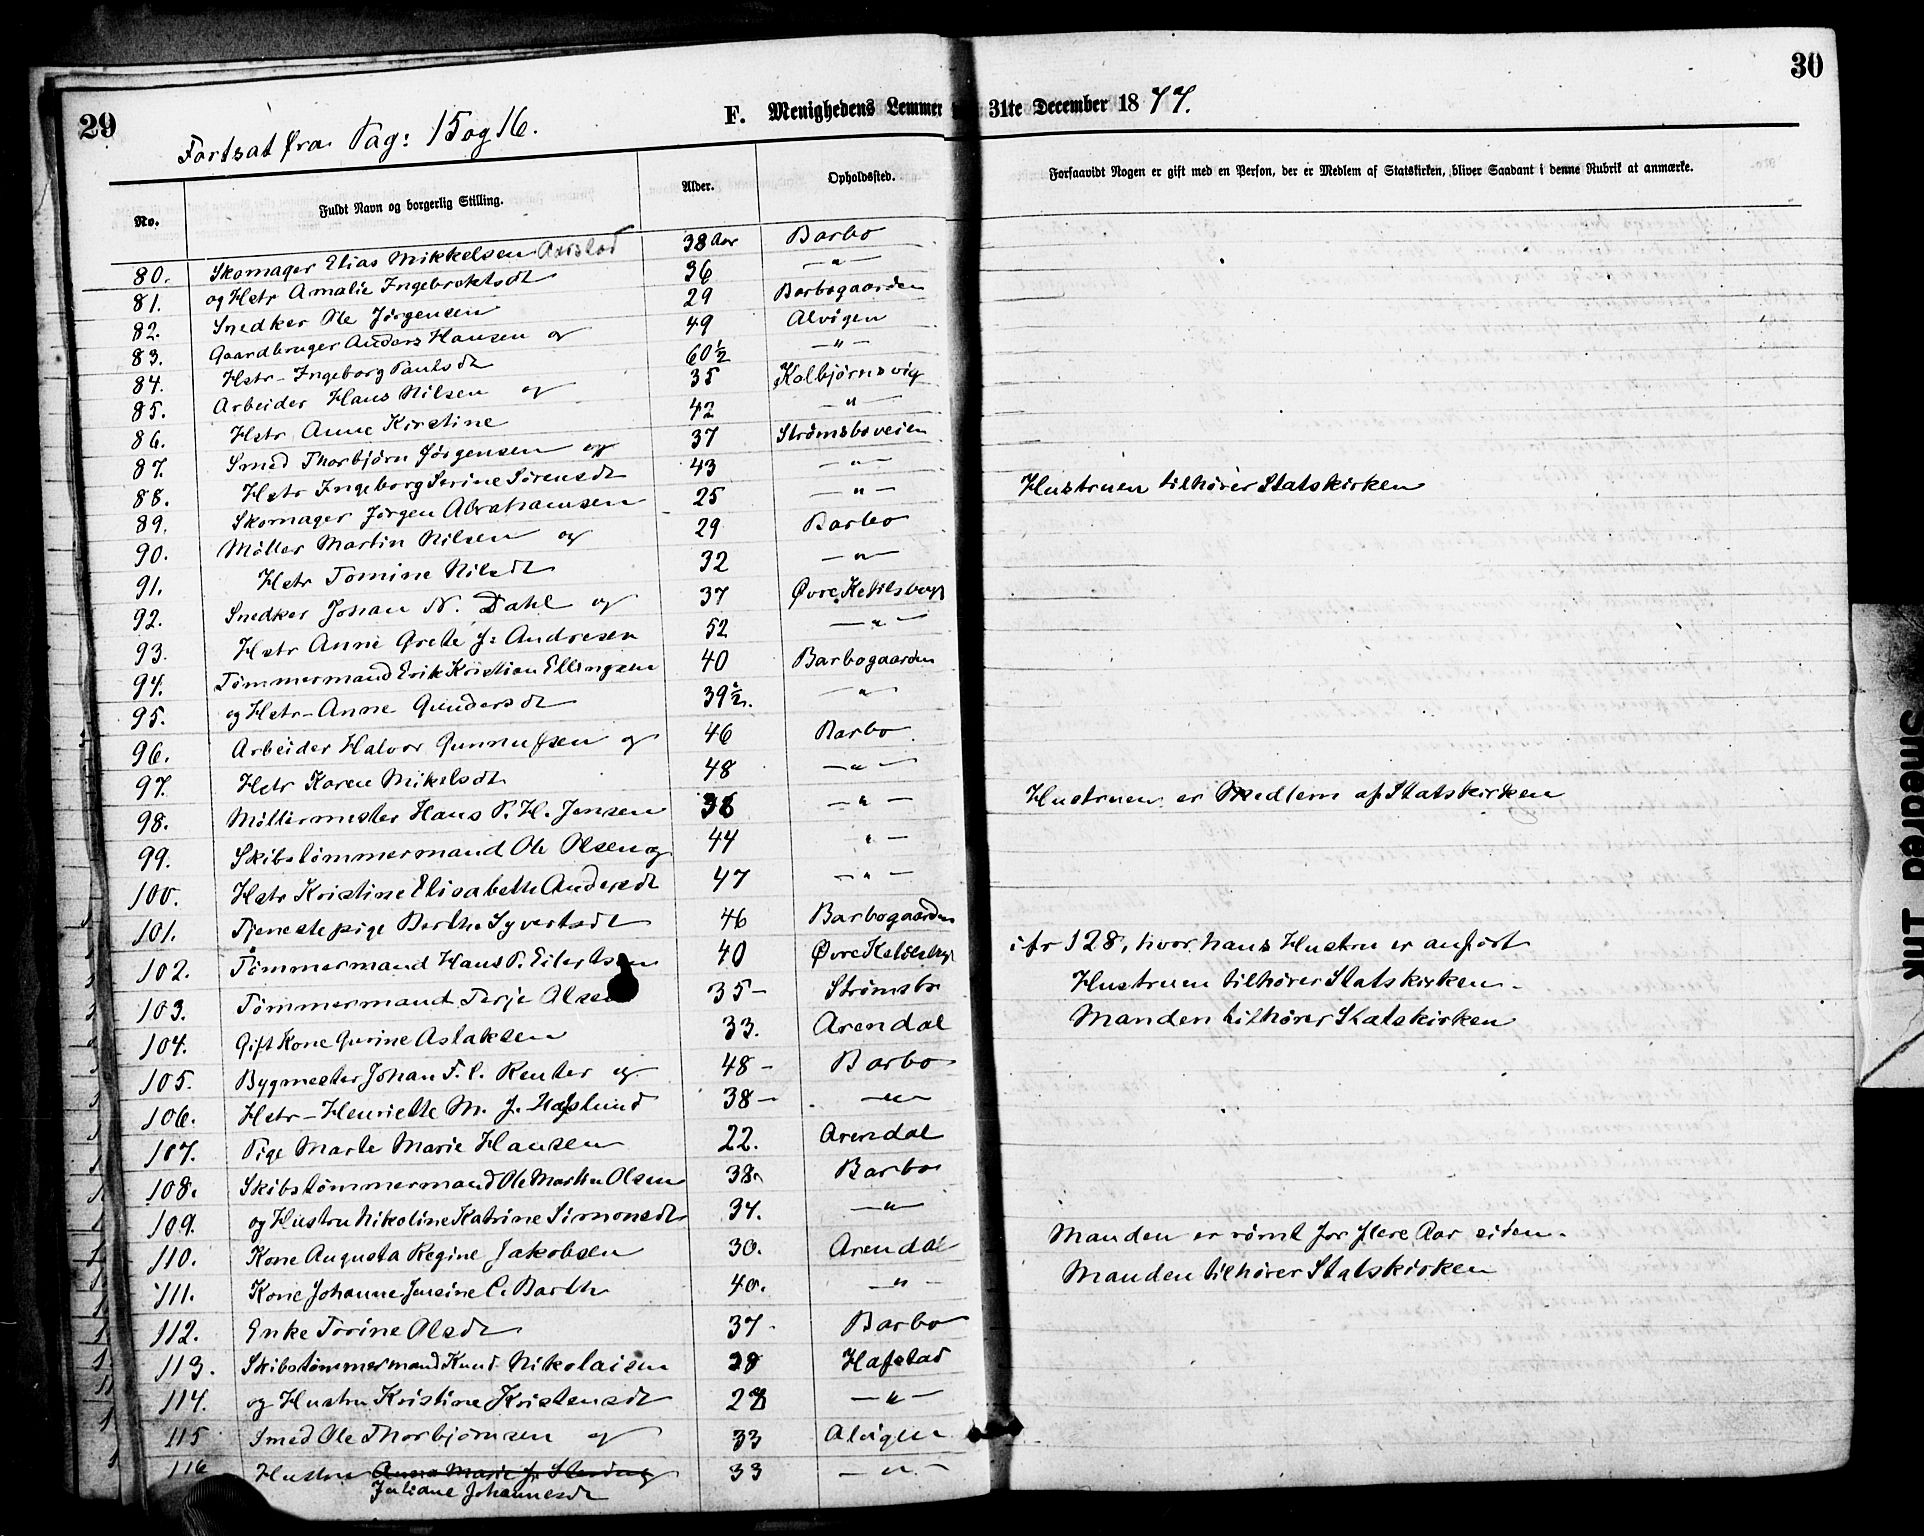 29
30
Fortsat fra Pag: 15 og 16.
F. Menighedens Lemmer 31te December 1877.
No.
Fuldt Navn og borgerlig Stilling.
Alder.
Opholdssted.
Forsaavidt Nogen er gift med en Person, der er Medlem af Statskirken, bliver Saadant i denne Rubrik at anmærke.
80. Skomager Elias Mikkelsen Aarstad 38 Aar Barbo
81. og Hstr Amalie Ingebrektsdt 36 — " —
82. Snedker Ole Jørgensen 29 Barbogaarden
83. Gaardbruger Anders Hansen og 49 Alvigen
84. Hstr- Ingeborg Paulsdt 60½ — " —
85. Arbeider Hans Nilsen og 35 Kolbjørnsvig
86. Hstr Anne Kirstine 42 — " —
87. Smed Thorbjørn Jørgensen og 37 Strømsboveien
88. Hstr Ingeborg Serine Sørensdt 43 — " —
89. Skomager Jørgen Abrahamsen 25 — " — Hustruen tilhører Statskirken
90. Møller Martin Nilsen og 29 Barbo
91. Hstr Tomine Nilsdt 32 — " —
92. Snedker Johan N. Dahl og 37 Øvre Kettilsbugt
93. Hstr Anne Grete J: Andresen 52 — " —
94. Tømmermand Erik Kristian Ellingsen 40 Barbogaarden
95. og Hstr- Anne Gundersdt 39½. "
96. Arbeider Halvor Gunnufsen og 46 Barbo
97. Hstr Karen Mikelsdt 48 — " —
98. Møllermester Hans P. H. Jensen 38 — " — Hustruen er Medlem af Statskirken
99. Skibstømmermand Ole Olsen og 44 " —
100. Hstr Kristine Elisabeth Andersdt 47 — " —
101. Tjenestepige Berthe Syvertsdt 46 Barbogaarden
102. Tømmermand Hans P. Eilertsen 40 Øvre Kettilsbugt cfr 128, hvor hans Hustru er anført
103. Tømmermand Terje Olsen 35- Strømsbo Hustruen tilhører Statskirken.
104. Gift Kone Gurine Aslaksen 33. Arendal Manden tilhører Statskirken
105. Bygmester Johan F. C. Reuter og 48- Barbo
106. Hstr- Henriette M. J. Hafslund 38- — " —
107. Pige Marte Marie Hansen 22. Arendal
108. Skibstømmermand Ole Martin Olsen 38. Barbo
109. og Hustru Nikoline Katrine Simonsdt 34. — " —
110. Kone Augusta Regine Jakobsen 30. Arendal Manden er rømt for flere Aar siden.
111. Kone Johanne Jensine C. Barth 40. — " — Manden tilhører Statskirken
112. Enke Torine Olsdt 37- Barbo
113. Skibstømmermand Knud Nikolaisen 28 Hafstad
114. og Hustru Kristine Kristensdt — " —
115 Smed Ole Thorbjørnsen og 33 Alvigen
116 Hustru Anna Marie J. 33 — " —
Juliane Johannesdt
Smedrød Trik